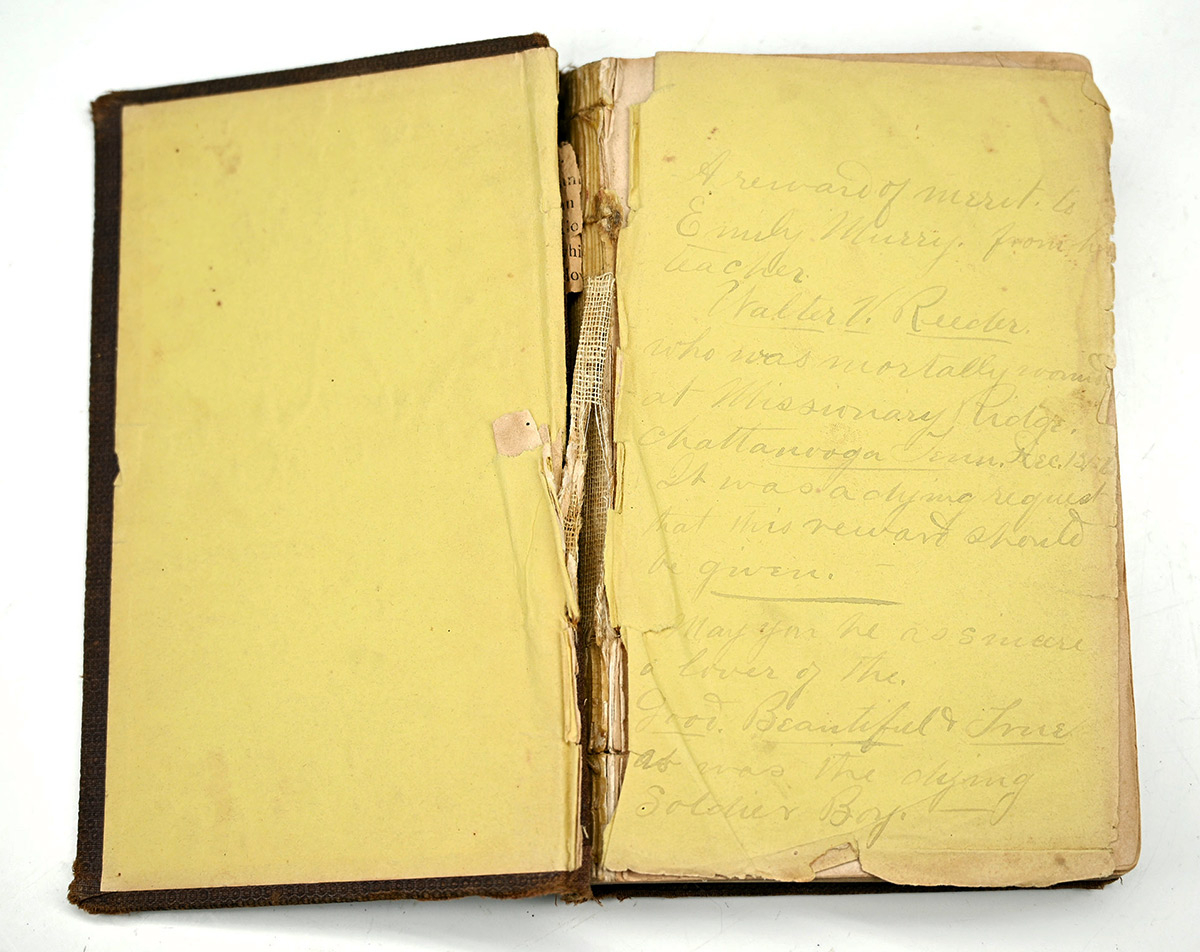 han
on
hi
A reward of merit. to
Emily Murry. from he
teacher.
Walter V. Reeder,
who was mortally wound
at Missionary Ridge,
Chattanooga Tenn.
It was a dying request
that this reward should
be given. —
May you be as sincere
a lover of the.
Good. Beautiful & True
as was the dying
Soldier Boy.